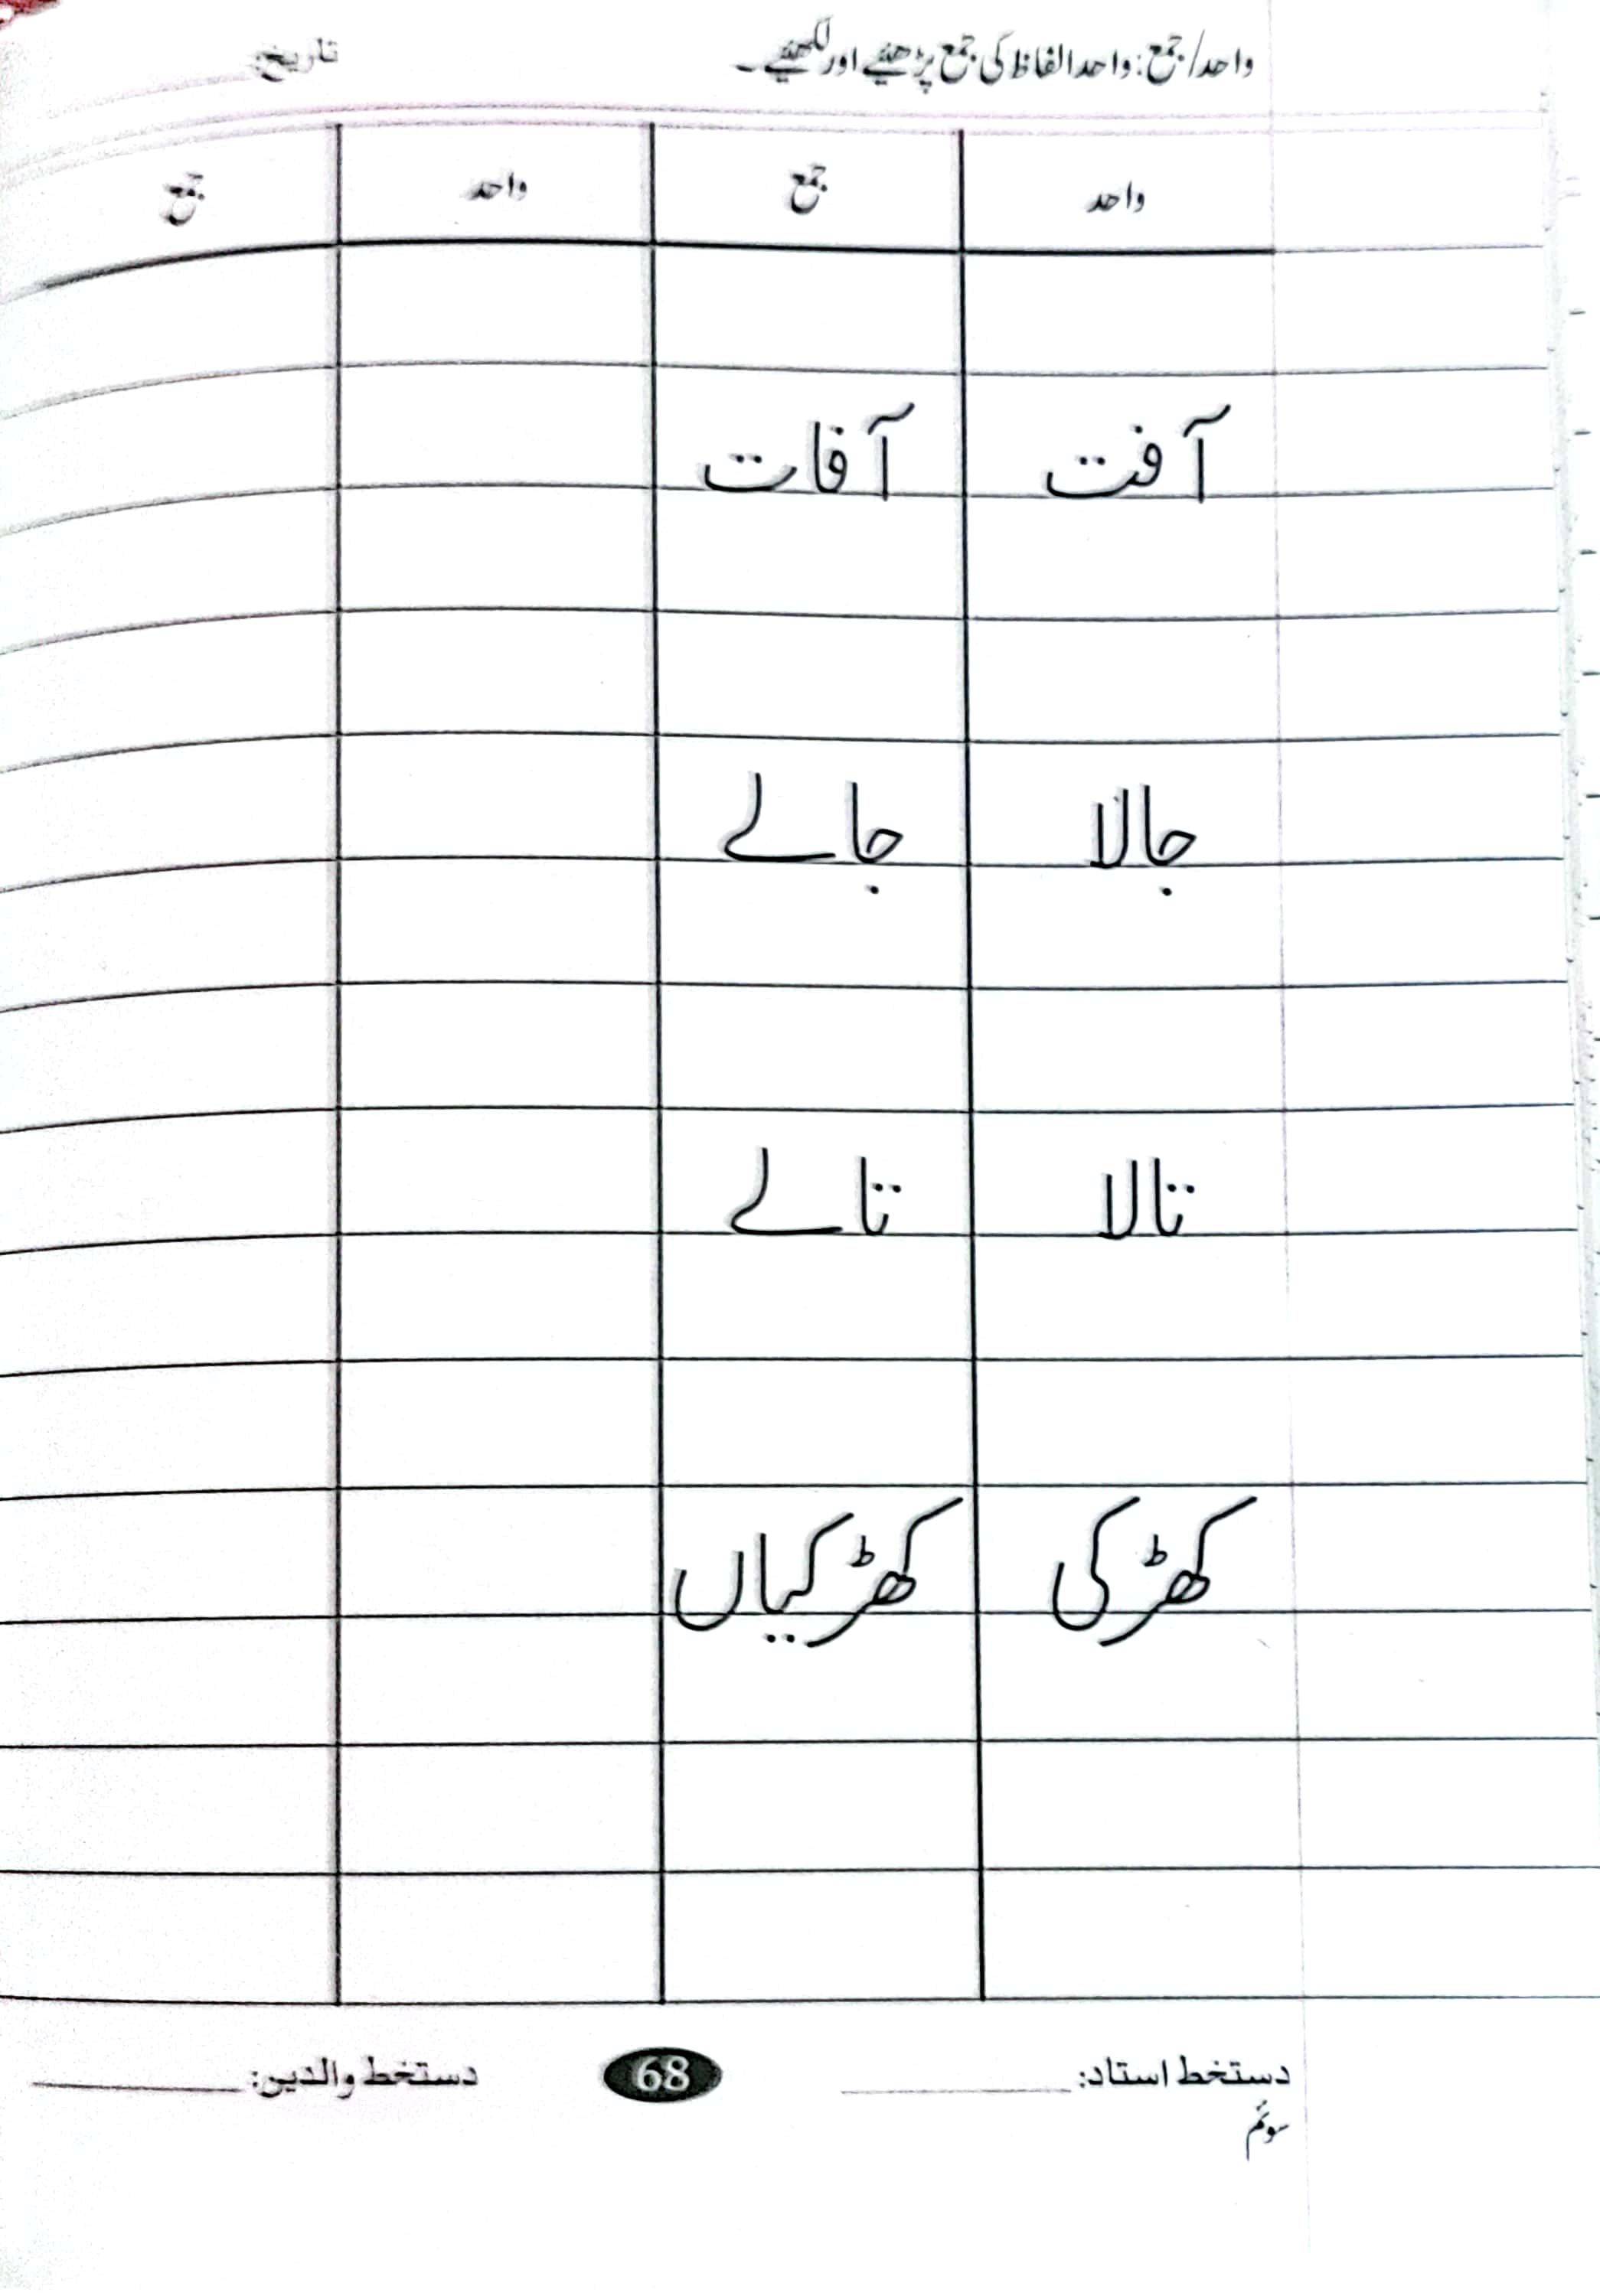 واحد/جمع: واحد الفاظ کی جمع پڑھیئے اور لکھیئے۔ تاریخ:
واحد جمع واحد جمع
آفت آفات
جالا جالے
تالا تالے
کھڑکی کھڑکیاں
دستخط استاد: 68 دستخط والدین:
سوئم